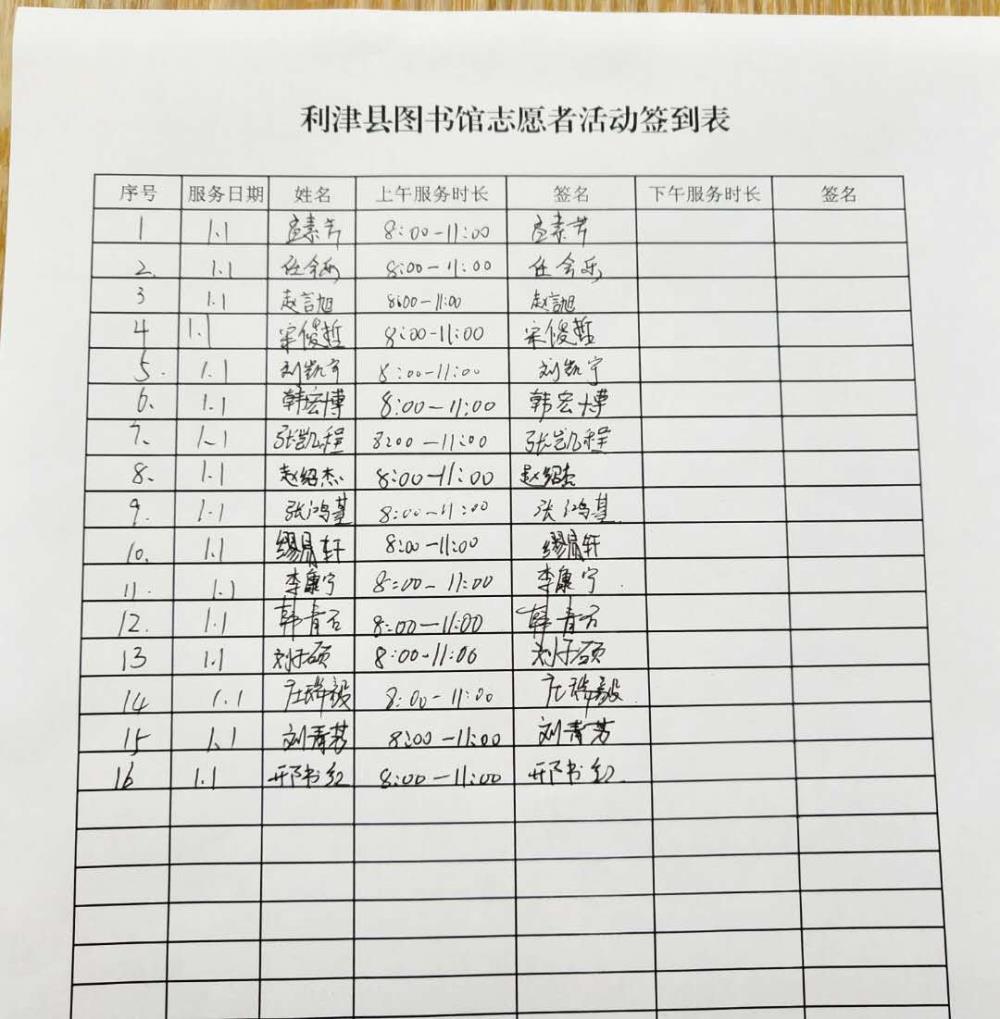 利津县图书馆志愿者活动签到表
序号 服务日期 姓名 上午服务时长 签名 下午服务时长 签名
1 1.1 8:00-11:00
2. 1.1 任会乐 8:00-11:00 任会乐
3 1.1 赵言旭 8:00-11:00 赵言旭
4 1.1 宋俊哲 8:00-11:00 宋俊哲
5. 1.1 刘凯宁 8:00-11:00 刘凯宁
6. 1.1 韩宏博 8:00-11:00 韩宏博
7. 1.1 张凯程 8:00-11:00 张凯程
8. 1.1 赵绍杰 8:00-11:00 赵绍杰
9. 1.1 张鸿基 8:00-11:00 张鸿基
10. 1.1 轩 8:00-11:00 轩
11. 1.1 李康宁 8:00-11:00 李康宁
12. 1.1 韩青 8:00-11:00 韩青
13 1.1 刘子硕 8:00-11:00 刘子硕
14 1.1 庄瑞毅 8:00-11:00 庄瑞毅
15 1.1 刘青芳 8:00-11:00 刘青芳
16 1.1 邢书红 8:00-11:00 邢书红